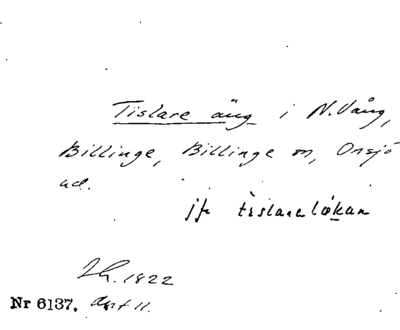 Tislare äng i N. Vång,
Billinge, Billinge sn, Onsjö
hd.
jfr tislarelökan
1822
Nr 6137.